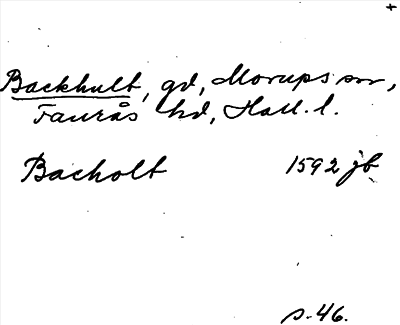 +
Backhult, gd, Morups sn,
Faurås hd, Hall. l.
Bacholt 1592 jb
s. 46.